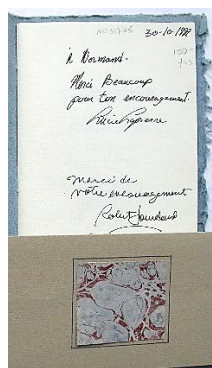 30-10-1998
À Normand.
Merci Beaucoup
pour ton encouragement.
Merci de
votre encouragement
Robert